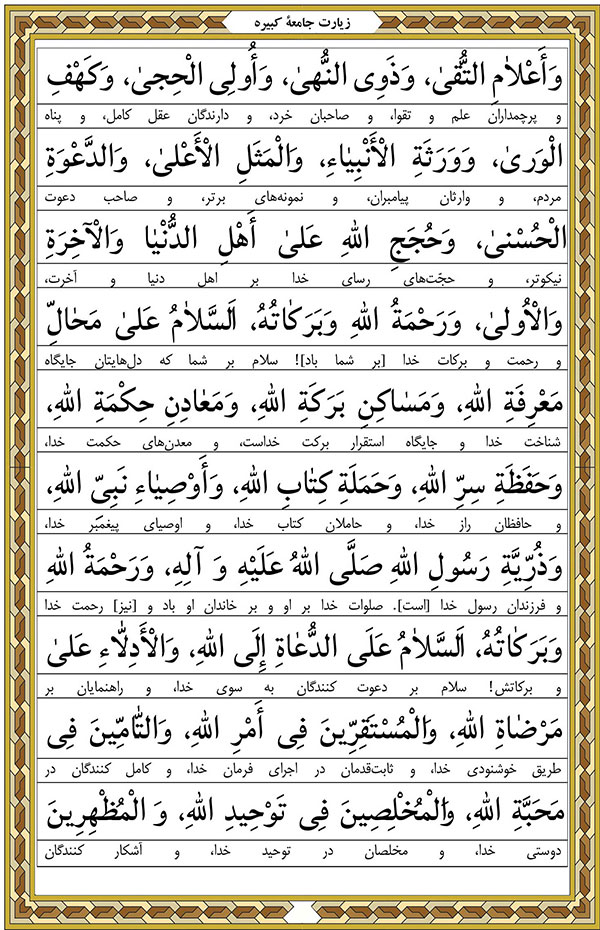 زیارت جامعهٔ کبیره
وَأَعْلاٰمِ التُّقىٰ، وَذَوِى النُّهىٰ، وَأُولِى الْحِجىٰ، وَكَهْفِ
و پرچمداران علم و تقوا، و صاحبان خرد، و دارندگان عقل کامل، و پناه
الْوَرىٰ، وَوَرَثَةِ الْأَنْبِيٰاءِ، وَالْمَثَلِ الْأَعْلىٰ، وَالدَّعْوَةِ
مردم، و وارثان پیامبران، و نمونه‌های برتر، و صاحب دعوت
الْحُسْنىٰ، وَحُجَجِ اللهِ عَلىٰ أَهْلِ الدُّنْيٰا وَالْآخِرَةِ
نیکوتر، و حجّت‌های رسای خدا بر اهل دنیا و آخرت،
وَالْاُولىٰ، وَرَحْمَةُ اللهِ وَبَرَكٰاتُهُ، اَلسَّلاٰمُ عَلىٰ مَحٰالِّ
و رحمت و برکات خدا [بر شما باد]! سلام بر شما که دل‌هایتان جایگاه
مَعْرِفَةِ اللهِ، وَمَسٰاكِنِ بَرَكَةِ اللهِ، وَمَعٰادِنِ حِكْمَةِ اللهِ،
شناخت خدا و جایگاه استقرار برکت خداست، و معدن‌های حکمت خدا،
وَحَفَظَةِ سِرِّ اللهِ، وَحَمَلَةِ كِتٰابِ اللهِ، وَأَوْصِيٰاءِ نَبِىِّ اللهِ،
و حافظان راز خدا، و حاملان کتاب خدا، و اوصیای پیغمَبر خدا،
وَذُرِّيَّةِ رَسُولِ اللهِ صَلَّى اللهُ عَلَيْهِ وَ آلِهِ، وَرَحْمَةُ اللهِ
و فرزندان رسول خدا [است]. صلوات خدا بر او و بر خاندان او باد و [نیز] رحمت خدا
وَبَرَكٰاتُهُ، اَلسَّلاٰمُ عَلَى الدُّعٰاةِ إِلَى اللهِ، وَالْأَدِلّٰاءِ عَلىٰ
و برکاتش! سلام بر دعوت کنندگان به سوی خدا، و راهنمایان بر
مَرْضٰاةِ اللهِ، وَالْمُسْتَقِرِّينَ فِى أَمْرِ اللهِ، وَالتّٰامِّينَ فِى
طریق خوشنودی خدا، و ثابت‌قدمان در اجرای فرمان خدا، و کامل کنندگان در
مَحَبَّةِ اللهِ، وَالْمُخْلِصِينَ فِى تَوْحِيدِ اللهِ، وَ الْمُظْهِرِينَ
دوستی خدا، و مخلصان در توحید خدا، و آشکار کنندگان